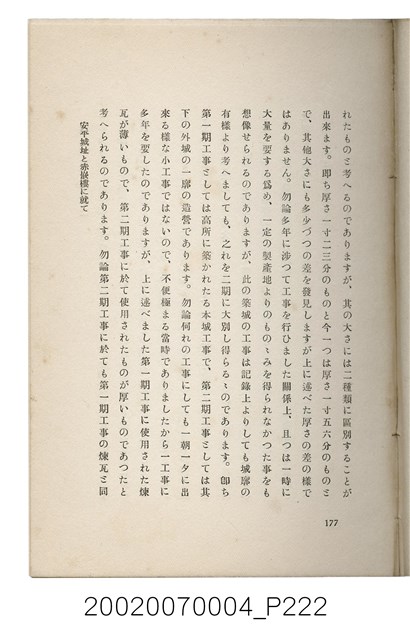 れたものと考へるのでありますが、其の大さには二種類に區別することが
出來ます。卽ち厚さ一寸二三分のものと今一つは厚さ一寸五六分のものと
で、其他大さにも多少づつの差を發見しますが上に述べた厚さの差の樣で
はありません。勿論多年に涉つて工事を行ひました關係上、且つは一時に
大量を要する爲め、一定の製產地よりのものゝみを得られなかつた事をも
想像せられるのでありますが、此の築城の工事は記錄上よりしても城廓の
有樣より考へましても、之れを二期に大別し得らるゝのであります。卽ち
第一期工事としては高所に築かれたる本城工事で、第二期工事としては其
下の外城の一廓の造營であります。勿論何れの工事にしても一朝一夕に出
來る樣な小工事ではないので、不便極まる當時でありましたから一工事に
多年を要したのでありますが、上に述べました第一期工事に使用された煉
瓦が薄いもので、第二期工事に於て使用されたものが厚いものであつたと
考へられるのであります。勿論第二期工事に於ても第一期工事の煉瓦と同
安平城址と赤嵌樓に就て
177
20020070004_P222